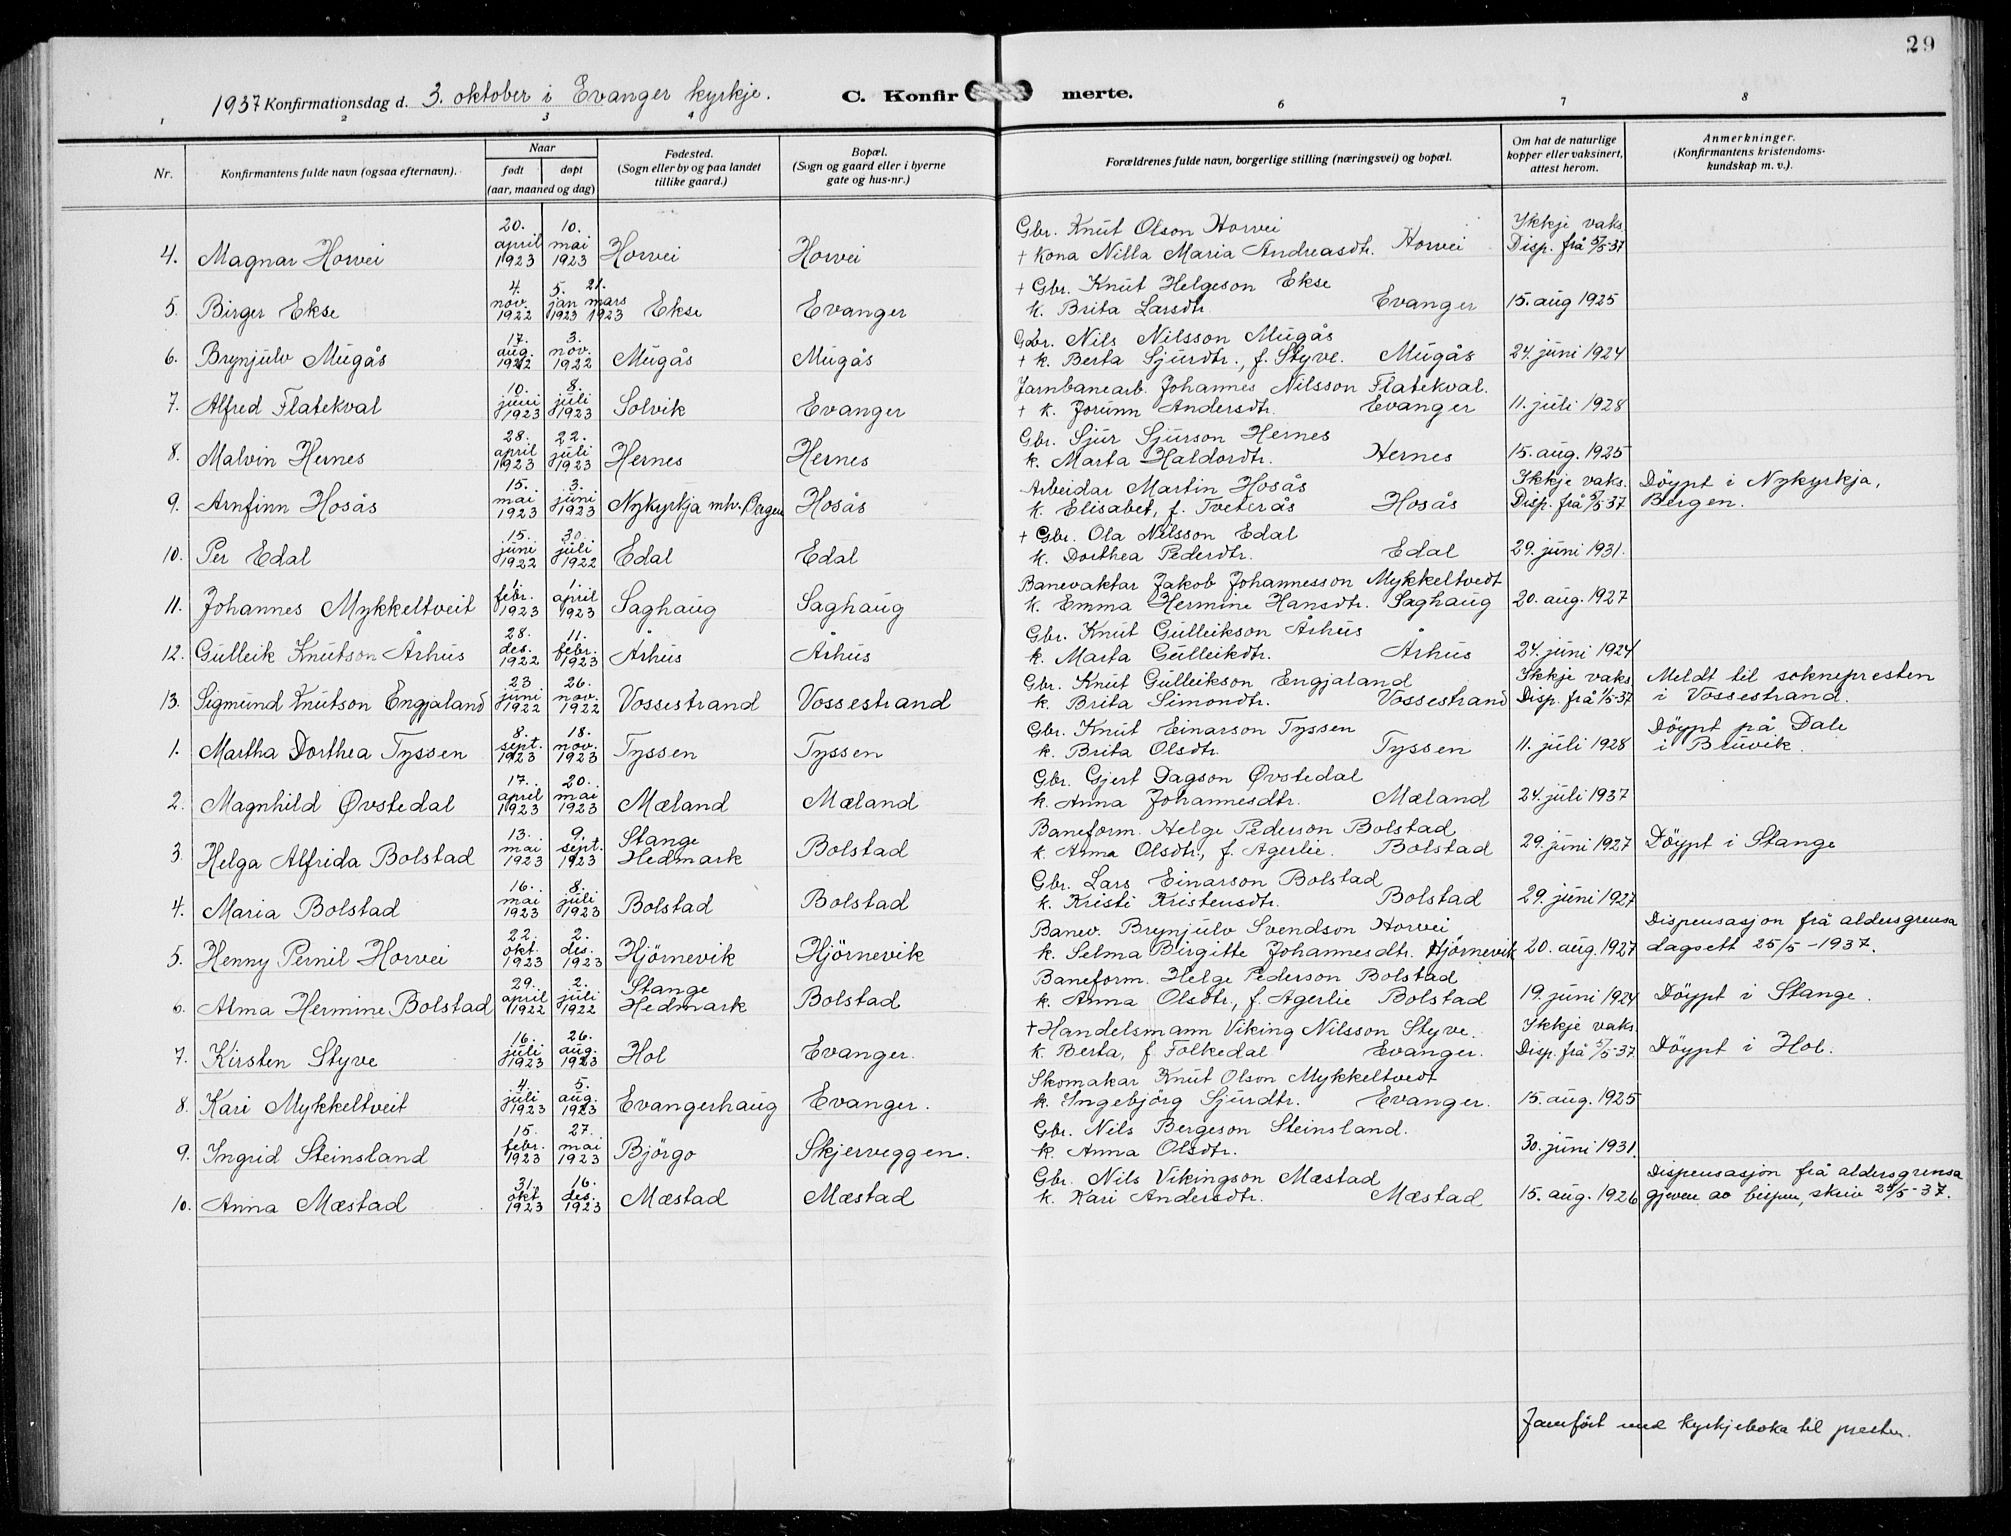 29
1937 Konfirmationsdag d. 3. oktober i Evanger kyrkje. C. Konfirmerte.
1 2 3 4 6 7 8
Nr. Konfirmantens fulde navn (ogsaa efternavn). Naar født døpt (aar, maaned og dag) Fødested. (Sogn eller by og paa landet tillike gaard.) Bopæl. (Sogn og gaard eller i byerne gate og hus-nr.) Forældrenes fulde navn, borgerlige stilling (næringsvei) og bopæl. Om hat de naturlige kopper eller vaksinert, attest herom. Anmerkninger. (Konfirmantens kristendoms-kundskap m. v.).
4. Magnar Horvei 20. april 1923 10. mai 1923 Horvei Horvei Gbr. Knut Olson Horvei
† kona Nilla Maria Andreasdtr. Horvei Ikkje vaks. Disp. frå 5/5-37
5. Birger Ekse 4. nov. 1922 5. jan 1923 21. mars 1923 Ekse Evanger † Gbr. Knut Helgeson Ekse
k. Brita Larsdtr. Evanger 15. aug 1925
6. Brynjulv Mugås 17. aug. 1922 3. nov. 1922 Mugås Mugås Gbr. Nils Nilsson Mugås
† k. Berta Sjurdtr., f. Styve. Mugås 24. juni 1924
7. Alfred Flatekval 10. juni 1923 8. juli 1923 Solvik Evanger Jarnbanearb. Johannes Nilsson Flatekval.
† k. Jorunn Andersdtr. Evanger 11. juli 1928
8. Malvin Hernes 28. april 1923 22. juli 1923 Hernes Hernes Gbr. Sjur Sjurson Hernes
k. Marta Haldordtr. Hernes 15. aug. 1925
9. Arnfinn Hosås 15. mai 1923 3. juni 1923 Nykyrkja mh. Bergen Hosås Arbeidar Martin Hosås
k. Elisabet, f. Tveterås Hosås Ikkje vaks. Disp. frå 5/5-37 Döypt i Nykyrkja, Bergen.
10. Per Edal 15. juni 1922 30. juli 1922 Edal Edal † Gbr. Ola Nilsson Edal
k. Dorthea Pedersdtr. Edal 29. juni 1931.
11. Johannes Mykkeltveit 1. febr. 1923 1. april 1923 Saghaug Saghaug Banevaktar Jakob Johannesson Mykkeltvedt
k. Emma Hermine Hansdtr. Saghaug 20. aug. 1927
12. Gulleik Knutson Århus 28. des. 1922 11. febr. 1923 Århus Århus Gbr. Knut Gulleikson Århus
k. Marta Gulleikdtr. Århus 24. juni 1924
13. Sigmund Knutson Engjaland 23 juni 1922 26. nov. 1922 Vossestrand Vossestrand Gbr. Knut Gulleikson Engjaland
k. Brita Simondtr. Vossestrand Ikkje vaks Disp. frå 1/5-37 Meldt til soknepresten i Vossestrand.
1. Martha Dorthea Tyssen 8. sept. 1923 18. nov. 1923 Tyssen Tyssen Gbr. Knut Einarson Tyssen
k. Brita Olsdtr. Tyssen 11. juli 1928 Döypt på Dale i Bruvik.
2. Magnhild Øvstedal 17. april 1923 20. mai 1923 Mæland Mæland Gbr. Gjert Dagson Øvstedal
k. Anna Johannesdtr. Mæland 24. juli 1937
3. Helga Alfrida Bolstad 13. mai 1923 9. sept. 1923 Stange Hedmark Bolstad Baneform. Helge Pederson Bolstad
k. Anna Olsdtr., f. Agerlie. Bolstad 29. juni 1927 Döypt i Stange
4. Maria Bolstad 16. mai 1923 8. juli 1923 Bolstad Bolstad Gbr. Lars Einarson Bolstad
k. Kristi Kristensdtr. Bolstad 29. juni 1927
5. Henny Pernil Horvei 22. okt. 1923 2. des. 1923 Hjörnevik Hjörnevik Banev. Brynjulv Svendson Horvei
k. Selma Birgitte Johannesdtr. Hjörnevik 20. aug. 1927 Dispensasjon frå aldersgrensa dagsett 25/5-1937.
6. Alma Hermine Bolstad 29. april 1922 2. juli 1922 Stange Hedmark Bolstad Baneform. Helge Pederson Bolstad
k. Anna Olsdtr., f. Agerlie Bolstad 19. juni 1924 Döypt i Stange.
7. Kirsten Styve 16. juli 1923 26. aug. 1923 Hol Evanger. † Handelsmann Viking Nilsson Styve.
k. Berta, f. Folkedal. Evanger. Ikkje vaks. Disp. frå 5/5-37 Döypt i Hol.
8. Kari Mykkeltveit 4. juli 1923 5. aug. 1923 Evangerhaug Evanger. Skomakar Knut Olson Mykkeltvedt
k. Ingebjörg Sjurdtr. Evanger. 15. aug. 1925
9. Ingrid Steinsland 15. febr. 1923 27. mai 1923 Björgo Skjerveggen. Gbr. Nils Bergeson Steinsland.
k. Anna Olsdtr. 30. juni 1931.
10. Anna Mæstad 31. okt. 1923 16. des. 1923 Mæstad Mæstad Gbr. Nils Vikingson Mæstad
k. Kari Andersdtr. Mæstad 15. aug. 1926 Dispensasjon frå aldersgrensa gjeven av bispen, skriv 24/5-37.
Jamfört med kyrkjeboka til presten.